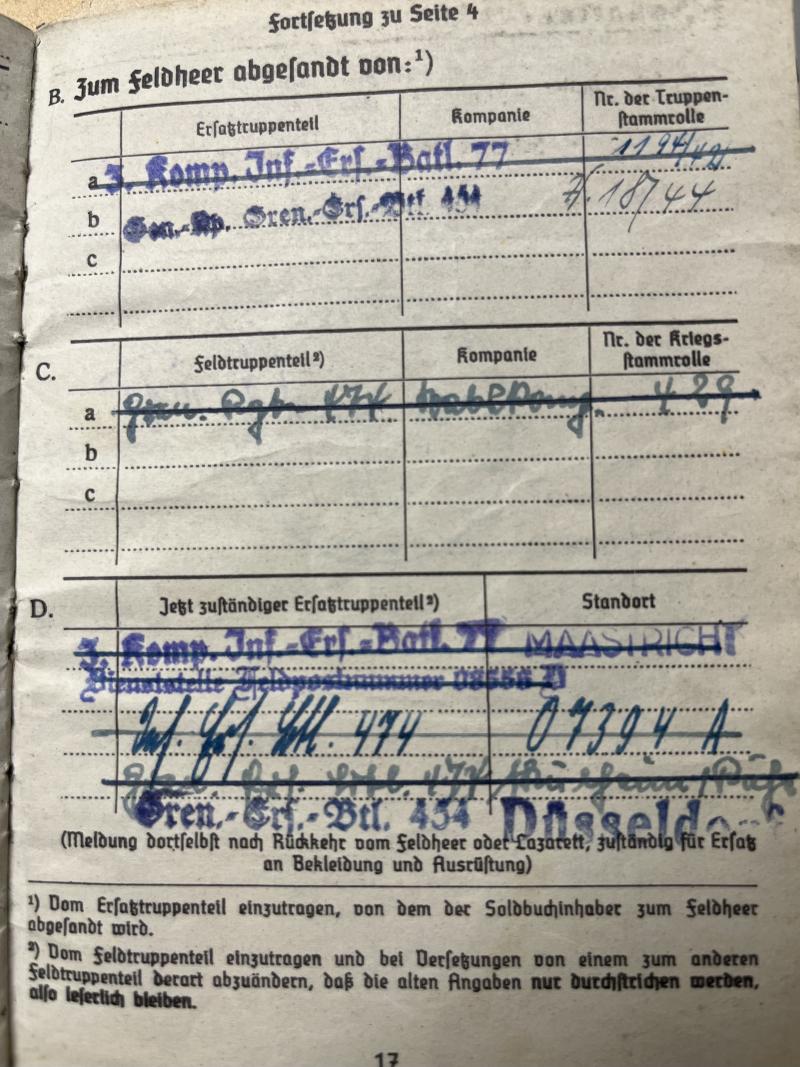 Fortsetzung zu Seite 4
B. Zum Feldheer abgesandt von:¹)
Ersatztruppenteil Kompanie Nr. der Truppen-
stammrolle
a 3. Komp. Inf.-Ers.-Batl. 77 1194/42
b Gen.-Kp. Gren.-Ers.-Btl. 454 18/44
c
C. Feldtruppenteil²) Kompanie Nr. der Kriegs-
stammrolle
a Gren. Rgt. 474 Stabskomp. 429
b
c
D. Jetzt zuständiger Ersatztruppenteil²) Standort
3. Komp. Inf.-Ers.-Batl. 77 MAASTRICHT
Dienststelle Feldpostnummer 08556 D
Inf. Ers. Btl. 474 07394 A
Gren. Ers. Btl. 474 Mülheim/Ruhr
Gren.-Ers.-Btl. 454 Düsseldorf
(Meldung dortselbst nach Rückkehr vom Feldheer oder Lazarett, zuständig für Ersatz
an Bekleidung und Ausrüstung)
¹) Vom Ersatztruppenteil einzutragen, von dem der Soldbuchinhaber zum Feldheer
abgesandt wird.
²) Vom Feldtruppenteil einzutragen und bei Versetzungen von einem zum anderen
Feldtruppenteil derart abzuändern, daß die alten Angaben nur durchstrichen werden,
also leserlich bleiben.
17